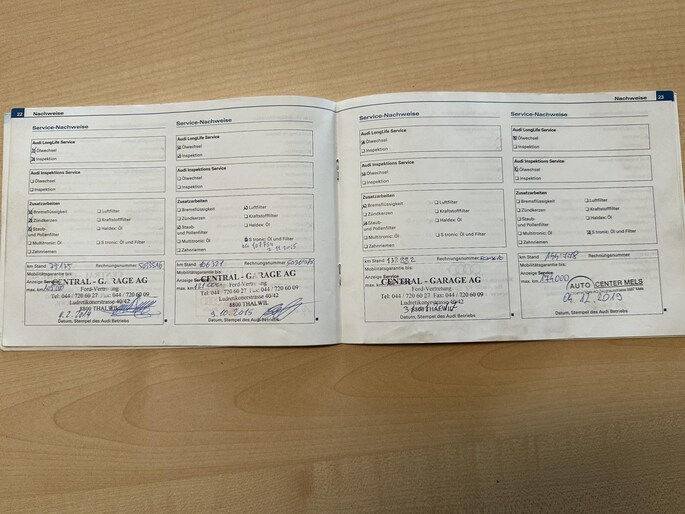 22 Nachweise
Service-Nachweise
Audi LongLife Service
Ölwechsel
Inspektion
Audi Inspektions Service
Ölwechsel
Inspektion
Zusatzarbeiten
Bremsflüssigkeit
Luftfilter
Zündkerzen
Kraftstofffilter
Staub- und Pollenfilter
Haldex Öl
Multitronic Öl
S tronic Öl und Filter
Zahnriemen
km Stand 79135 Rechnungsnummer
Mobilitätsgarantie bis:
Anzeige Service
max. km
CENTRAL - GARAGE AG
Ford-Vertretung
Tel: 044 / 720 60 27 Fax: 044 / 720 60 09
Ludretikonerstrasse 40/42
8800 THALWIL
Datum, Stempel des Audi Betriebs
Service-Nachweise
Audi LongLife Service
Ölwechsel
Inspektion
Audi Inspektions Service
Ölwechsel
Inspektion
Zusatzarbeiten
Bremsflüssigkeit
Luftfilter
Zündkerzen
Kraftstofffilter
Staub- und Pollenfilter
Haldex Öl
Multitronic Öl
S tronic Öl und Filter
Zahnriemen
km Stand 106321 Rechnungsnummer
Mobilitätsgarantie bis:
Anzeige Service
max. km
CENTRAL - GARAGE AG
Ford-Vertretung
Tel: 044 / 720 60 27 Fax: 044 / 720 60 09
Ludretikonerstrasse 40/42
8800 THALWIL
9.10.2015
Datum, Stempel des Audi Betriebs
Nachweise 23
Service-Nachweise
Audi LongLife Service
Ölwechsel
Inspektion
Audi Inspektions Service
Ölwechsel
Inspektion
Zusatzarbeiten
Bremsflüssigkeit
Luftfilter
Zündkerzen
Kraftstofffilter
Staub- und Pollenfilter
Haldex Öl
Multitronic Öl
S tronic Öl und Filter
Zahnriemen
km Stand 132222 Rechnungsnummer
Mobilitätsgarantie bis:
Anzeige Service
max. km
CENTRAL - GARAGE AG
Ford-Vertretung
Tel: 044 / 720 60 27 Fax: 044 / 720 60 09
Ludretikonerstrasse 40/42
8800 THALWIL
Datum, Stempel des Audi Betriebs
Service-Nachweise
Audi LongLife Service
Ölwechsel
Inspektion
Audi Inspektions Service
Ölwechsel
Inspektion
Zusatzarbeiten
Bremsflüssigkeit
Luftfilter
Zündkerzen
Kraftstofffilter
Staub- und Pollenfilter
Haldex Öl
Multitronic Öl
S tronic Öl und Filter
Zahnriemen
km Stand Rechnungsnummer
Mobilitätsgarantie bis:
Anzeige Service
max. km 174000
AUTO CENTER MELS
04.12.2019
Datum, Stempel des Audi Betriebs